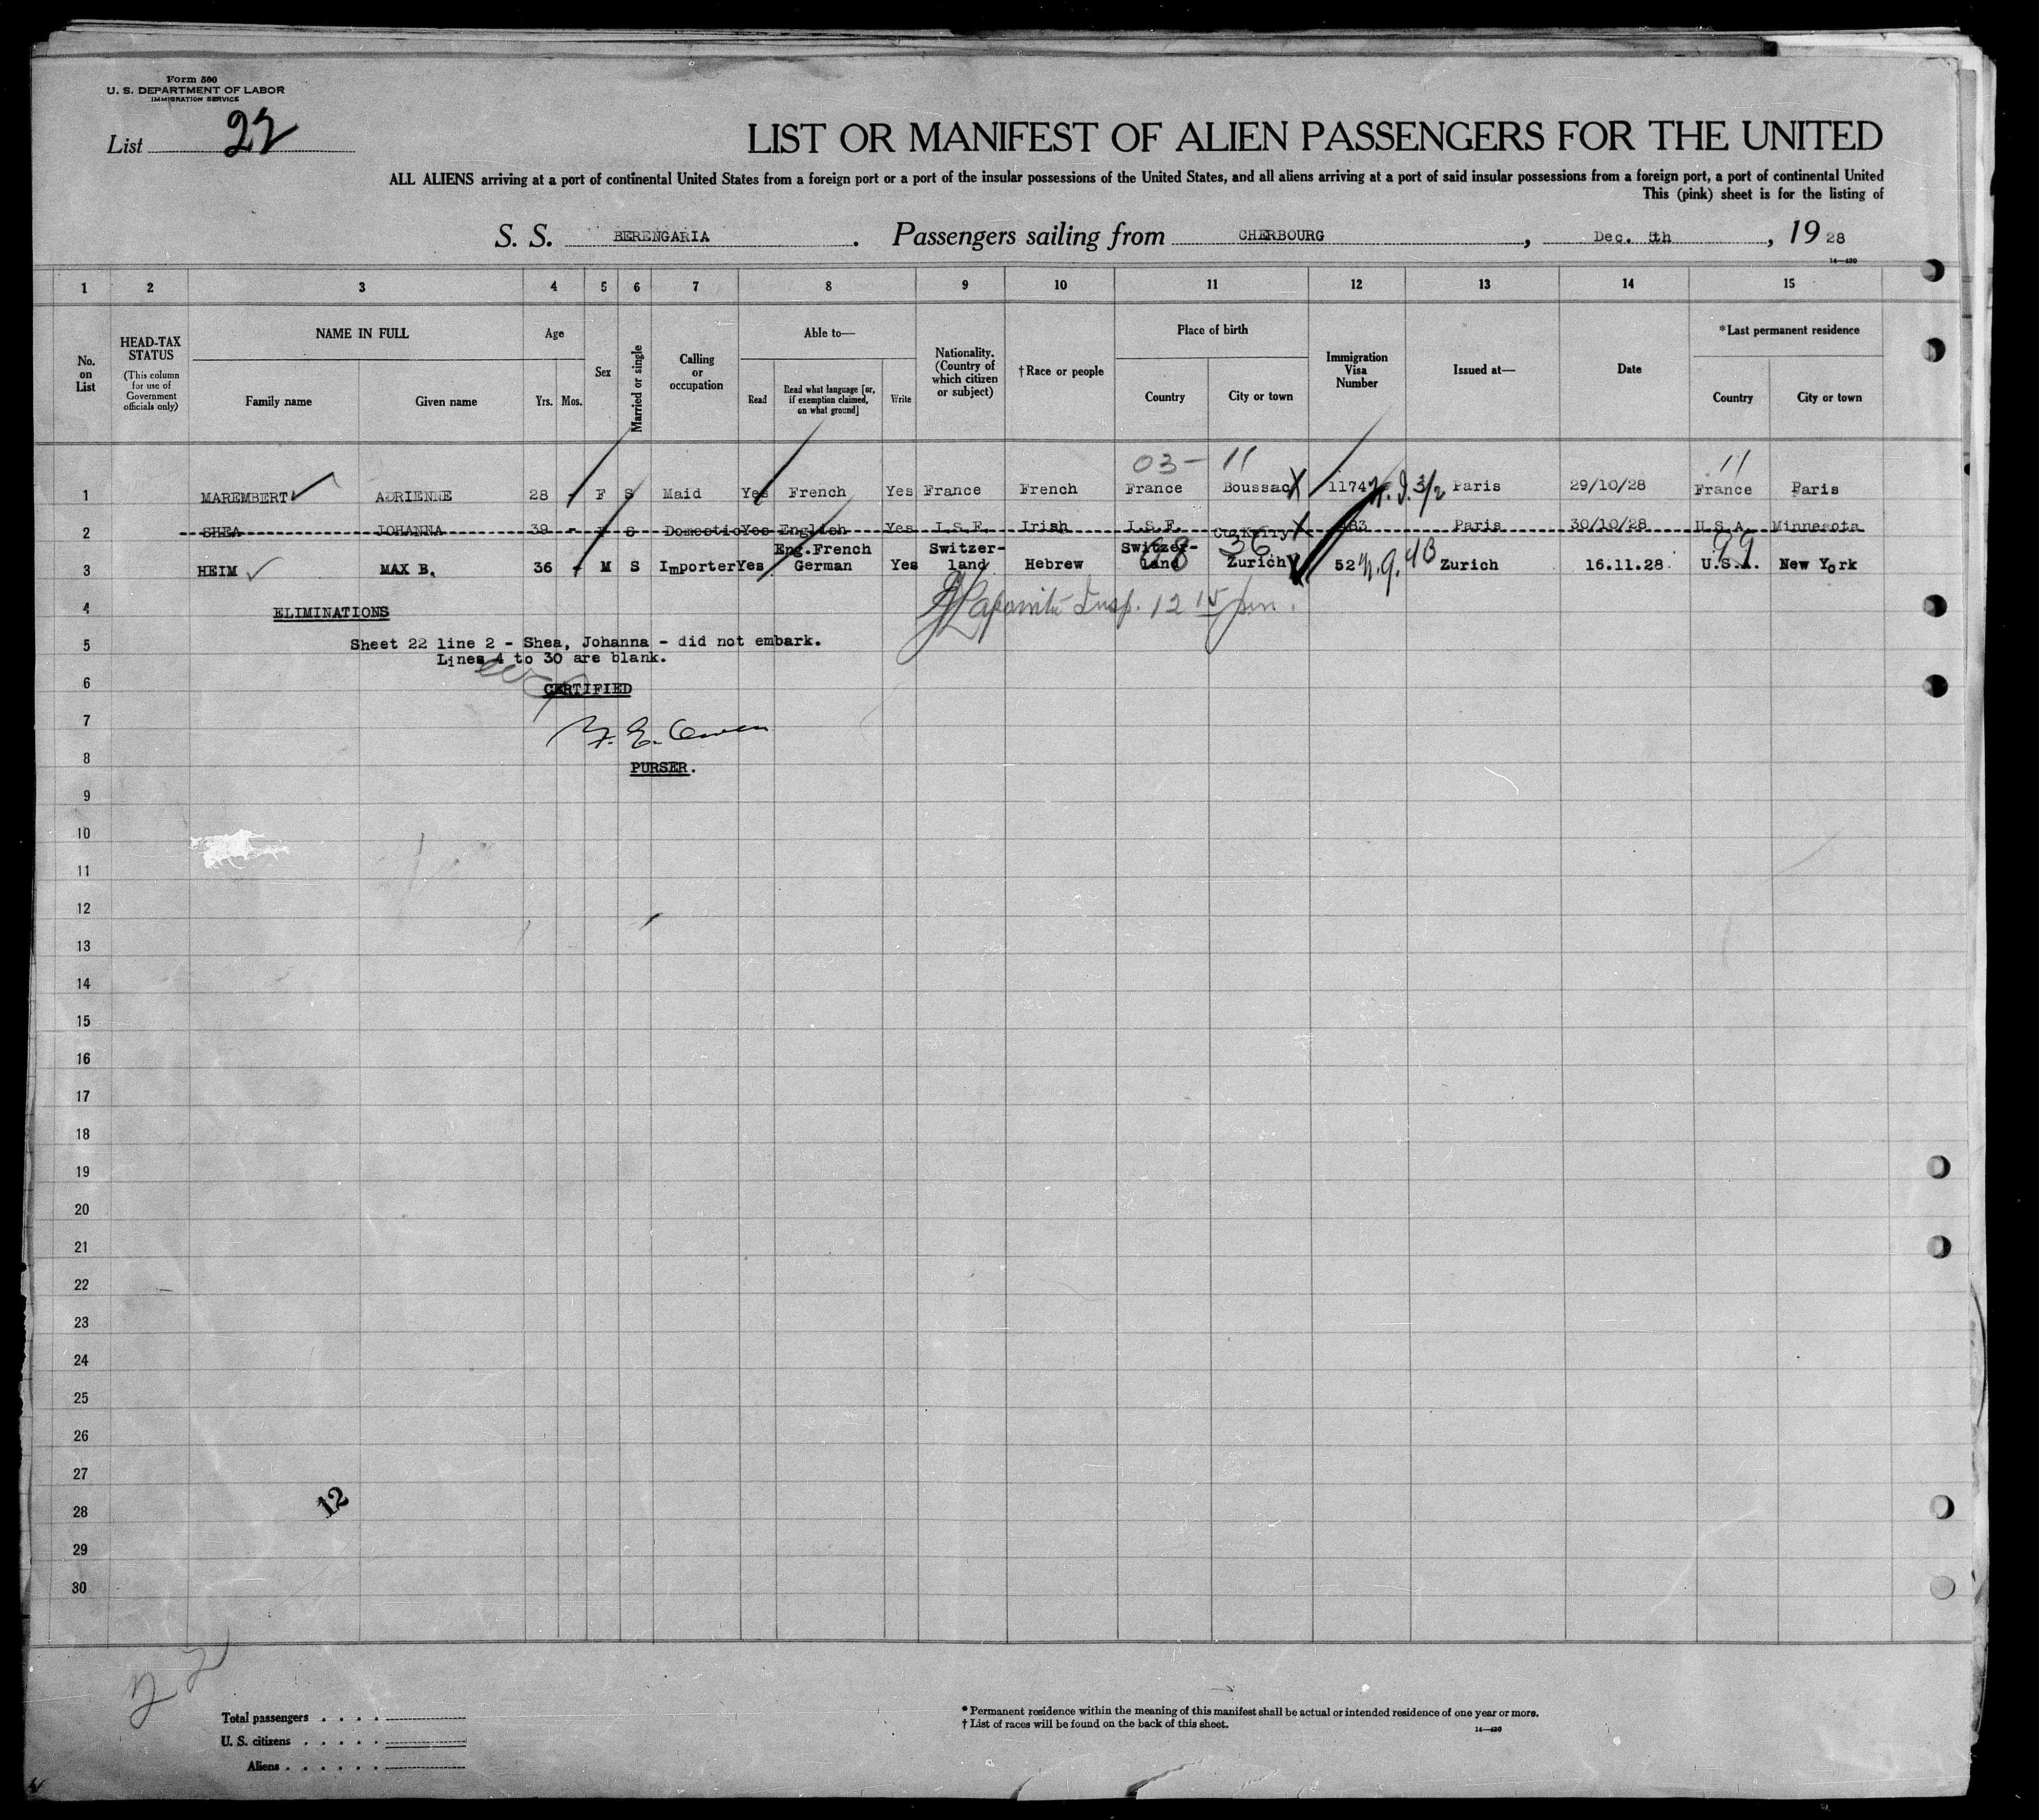 Form 500
U. S. DEPARTMENT OF LABOR
IMMIGRATION SERVICE
List 22
LIST OR MANIFEST OF ALIEN PASSENGERS FOR THE UNITED
ALL ALIENS arriving at a port of continental United States from a foreign port or a port of the insular possessions of the United States, and all aliens arriving at a port of said insular possessions from a foreign port, a port of continental United
This (pink) sheet is for the listing of
S. S. BERENGARIA. Passengers sailing from CHERBOURG, Dec. 5th, 19 28
14—430
1 2 3 4 5 6 7 8 9 10 11 12 13 14 15
No. on List
HEAD-TAX STATUS
(This column for use of Government officials only)
NAME IN FULL
Family name Given name
Age
Yrs. Mos.
Sex
Married or single
Calling or occupation
Able to—
Read
Read what language [or, if exemption claimed, on what ground]
Write
Nationality. (Country of which citizen or subject)
†Race or people
Place of birth
Country City or town
Immigration Visa Number
Issued at—
Date
*Last permanent residence
Country City or town
03 — 11 11
1 MAREMBERT ADRIENNE 28 - F S Maid Yes French Yes France French France Boussac X 1174 3/2 Paris 29/10/28 France Paris
2 SHEA JOHANNA 39 - F S Domestic Yes English Yes I.S.F. Irish I.S.F. Co.Kerry X 483 Paris 30/10/28 U.S.A. Minnesota
36 99
3 HEIM MAX B. 36 - M S Importer Yes Eng.French German Yes Switzer-land Hebrew Switzer-land Zurich 52 Zurich 16.11.28 U.S.A. New York
4 ELIMINATIONS
Insp. 12 15 pm.
5 Sheet 22 line 2 - Shea, Johanna - did not embark.
Lines 4 to 30 are blank.
6 CERTIFIED
7
8 PURSER.
9
10
11
12
13
14
15
16
17
18
19
20
21
22
23
24
25
26
27
28 12
29
30
Total passengers . . . .
U. S. citizens . . . . .
Aliens . . . . . .
* Permanent residence within the meaning of this manifest shall be actual or intended residence of one year or more.
† List of races will be found on the back of this sheet.
14—430